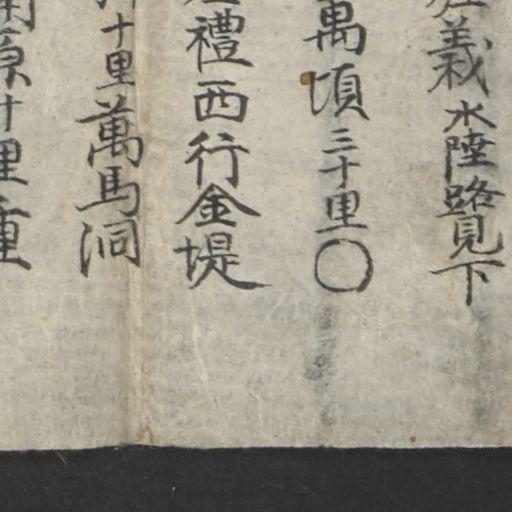 義水陸路見下
萬頃三十里〇
禮西行金堤
十里萬馬洞
原十里重